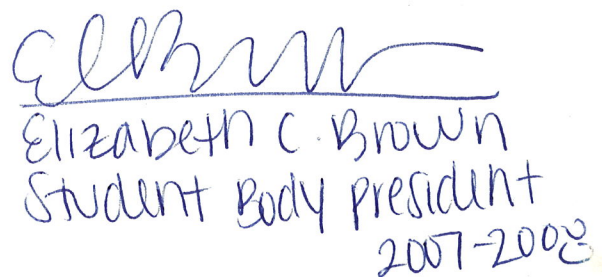 Elizabeth C. Brown
Student Body President
2007-2008